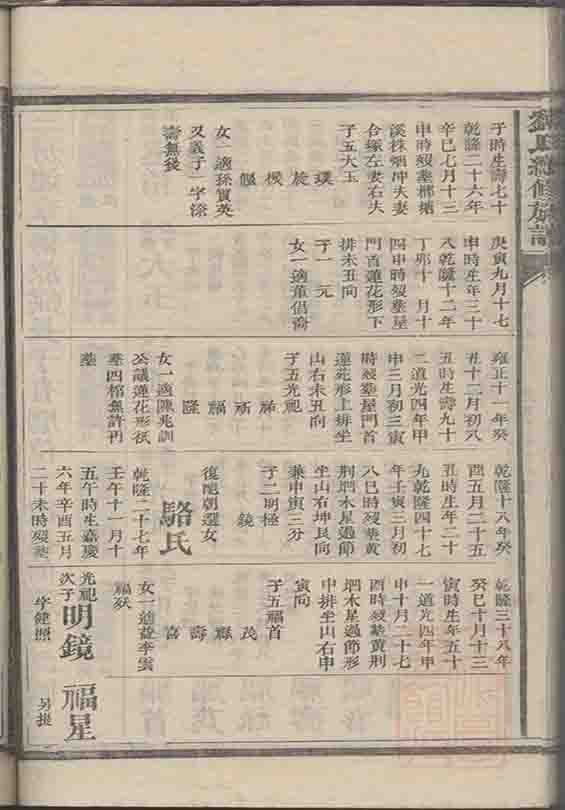 氏續修族譜
子時生壽七十
乾隆二十六年
辛巳七月十三
申時歿塟
溪株烟冲夫妻
合塚左妻右夫
子五大玉
璞
女一適孫賀英
又義子一字深
壽無後
庚寅九月十七
申時生三十
八乾隆十二年
丁卯十月十
四申時歿塟屋
門首蓮花形下
排未丑向
子一元
女一適董倡裔
雍正十一年癸
丑十二月初八
丑時生壽九十
二道光四年甲
申三月初三寅
時歿塟屋門首
蓮花形上排坐
山右未丑向
子五光祝
福
隆
女一適陳兆訓
公議蓮花形祇
塟四棺無許再
塟
乾隆十八年癸
酉五月二十五
丑時生年二十
九乾隆四十七
年壬寅三月初
八巳時歿塟黃
荆堈木星過節
坐山右坤艮向
兼申寅三分
子二明極
鏡
復配朝選女
駱氏
乾隆二十七年
壬午十一月十
五午時生嘉慶
六年辛酉五月
二十未時歿塟
乾隆三十八年
癸巳十月十三
寅時生年五十
一道光四年甲
申十月二十七
酉時歿塟黃荆
堈木星過節形
中排坐山右申
寅向
子五福首
茂
祿
壽
喜
女一適益李雲
福歿
光祝
次子
明鏡
字健照
福星
另提